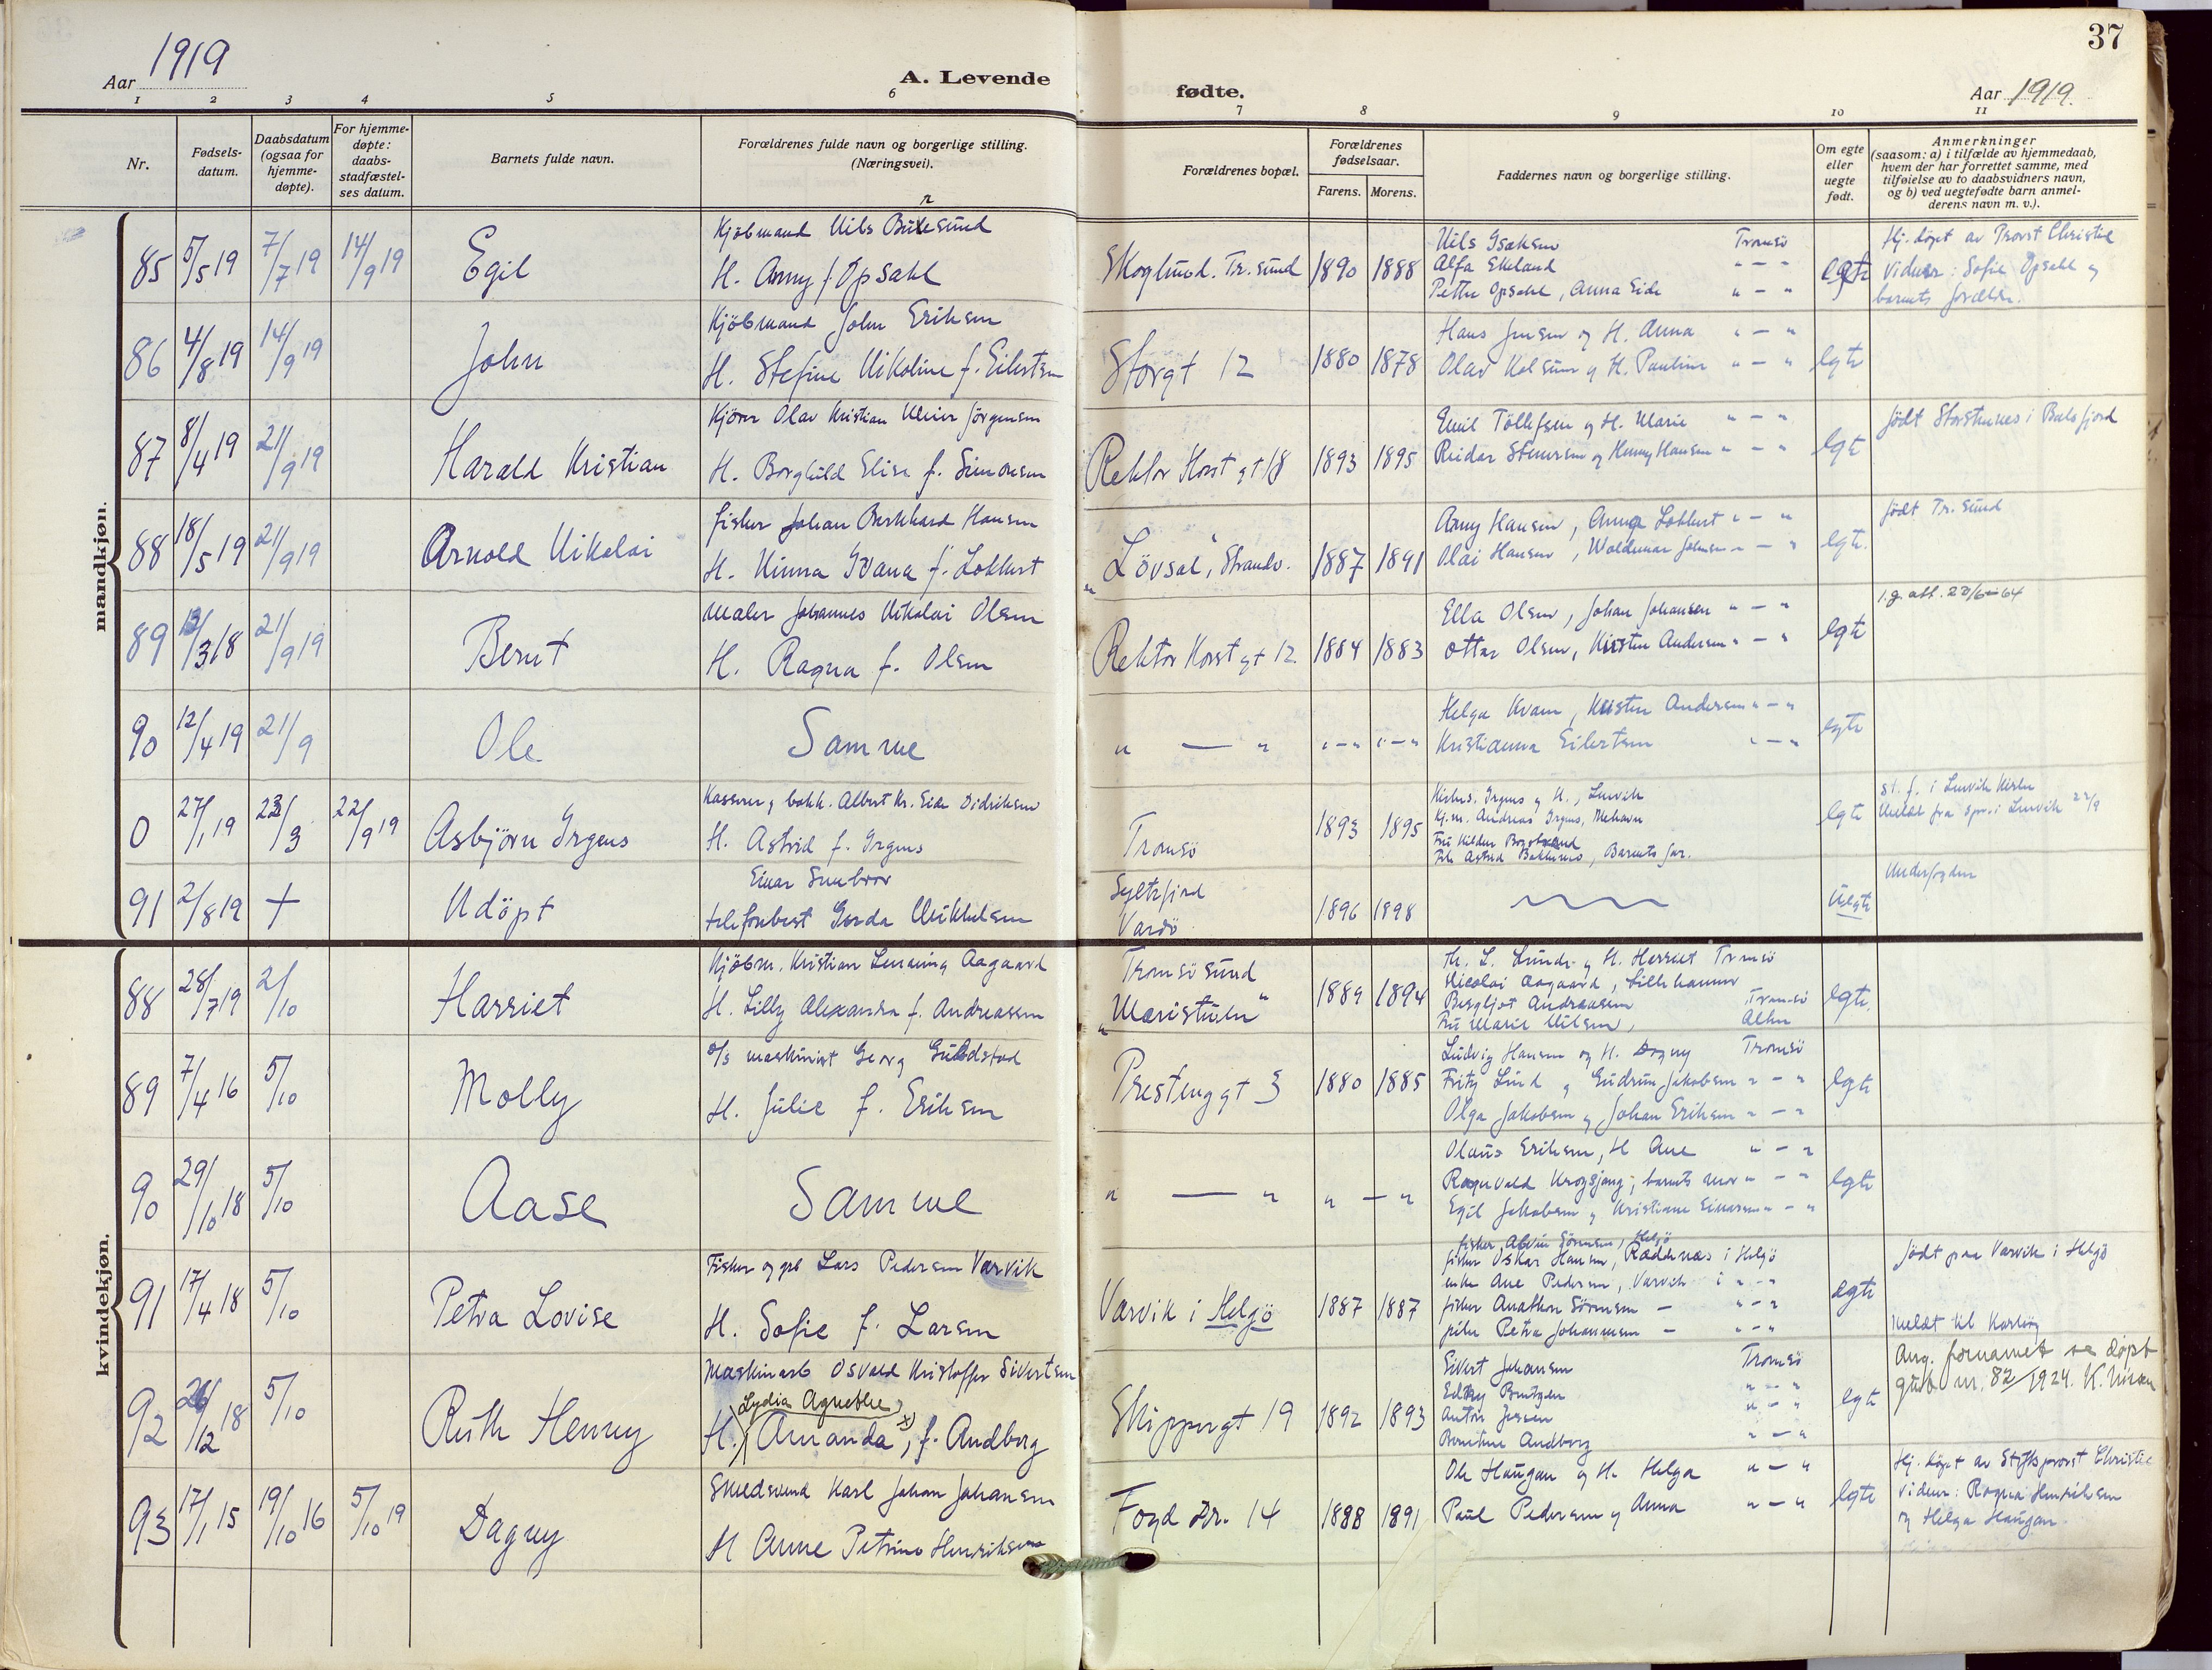 37
Aar 1919
A. Levende
fødte.
Aar 1919.
1 2 3 4 5 6 7 8 9 10 11
Nr.
Fødsels-
datum.
Daabsdatum
(ogsaa for
hjemme-
døpte).
For hjemme-
døpte:
daabs-
stadfæstel-
ses datum.
Barnets fulde navn.
Forældrenes fulde navn og borgerlige stilling.
(Næringsvei).
Forældrenes bopæl.
Forældrenes
fødselsaar.
Farens. Morens.
Faddernes navn og borgerlige stilling.
Om egte
eller
uegte
født.
Anmerkninger
(saasom: a) i tilfælde av hjemmedaab,
hvem der har forrettet samme, med
tilføielse av to daabsvidners navn,
og b) ved uegtefødte barn anmel-
derens navn m. v.).
mandkjøn.
85 5/5 19 7/7 19 14/9 19 Egil
Kjöbmand Nils
H. Anny f. Opsahl
Skoglund. Tr. sund 1890 1888
Nils Isaksen Tromsö
Alfa Ekeland " — "
Petter Opsahl, Anna Eide " — "
egte
Hj. döpt av Provst Christie
Vidner: Sofie Opsahl og
barnets forældre.
86 4/8 19 14/9 19 John
Kjöbmand John Eriksen
H. Stefine Nikoline f. Eilertsen
Storgt 12 1880 1878
Hans Jensen og H. Anna " — "
Olav Kolsum og H. Pauline " — "
egte
87 8/4 19 21/9 19 Harald Kristian
Kjörer Olav Kristian Meier Jörgensen
H. Borghild Elise f. Simonsen
Rektor Horst gt 18 1893 1895
Emil Tollefsen og H. Marie " — "
Reidar Steversen og Henny Hansen " — "
egte
født Storstennes i Balsfjord
88 18/5 19 21/9 19 Arnold Nikolai
fisker Johan Burkhard Hansen
H. Ninna Ivana f. Lökkert
"Lövsal", Strandv. 1887 1891
Anny Hansen, Anna Lökkert " — "
Olai Hansen, Woldemar Johnsen " — "
egte.
født Tr. sund
89 13/3 18 21/9 19 Bernt
Maler Johannes Nikolai Olsen
H. Ragna f. Olsen
Rektor Horst gt 12. 1884 1883
Ella Olsen, Johan Johansen " — "
Ottar Olsen, Kirsten Andersen " — "
egte
l.g. att. 22/6-64
90 12/4 19 21/9 Ole
Samme
" — " " — " " — "
Helga Kvam, Kirsten Andersen " — "
Kristianna Eilertsen " — "
egte
0 27/1 19 23/3 22/9 19 Asbjörn Irgens
Kasserer og bokh. Albert Kr. Eide Didriksen
H. Astrid f. Irgens
Tromsö 1893 1895
Kirkes. Irgens og H., Lenvik
Kj.m. Andreas Irgens, Mehavn
Barnets far.
egte
st. f. i Lenvik Kirke
Meldt fra spr. i Lenvik 22/9
91 2/8 19 + Udöpt
Einar
telefonbest Gerda Mikkelsen
Syltefjord
Vardö 1896 1898
uegte
kvindekjøn.
88 28/7 19 2/10 Harriet
Kjöbm. Kristian Lenning Aagaard
H. Lilly Alexandra f. Andreassen
Tromsösund
"Maristuen" 1889 1894
Th. L. Lunde og H. Herriet Tromsö
Nicolai Aagaard, Lillehammer
Bergljot Andreassen Tromsö
Fru Marie Nilsen, Alta
egte
89 7/4 16 5/10 Molly
d/s maskinist Georg Guldstad
H. Julie f. Eriksen
Prestenggt 3 1880 1885
Ludvig Hansen og H. Dagny Tromsö
Fritz Lind og Gudrun Jakobsen " — "
Olga Jakobsen og Johan Eriksen " — "
egte
90 29/10 18 5/10 Aase
Samme
" — " " — "
Olaus Eriksen, H Ane " — "
Ragnvald Krogsjeng; barnets mor " — "
Egil Jakobsen og Kristiane Einarsen " — "
egte
91 17/4 18 5/10 Petra Lovise
Fisker og grb Lars Pedersen Varvik
H. Sofie f. Larsen
Varvik i Helgö 1887 1887
fisker Alvin Sörensen, Helgö
fisker Oskar Hansen, Röddenes i Helgö
enke Ane Pedersen, Varvik i " — "
fisker Anathon Sörensen — " — "
Petra Johannesen — " — "
egte
født paa Varvik i Helgö
Meldt til Karlsöy
92 26/12 18 5/10 Ruth Henny
Maskinarb Osvald Kristoffer Sivertsen
Lydia Agnethe
H. Amanda x), f. Andberg
Skippergt 19 1892 1893
Sivert Johansen Tromsö
Berntzen " — "
Anton Jessen " — "
Berntine Andberg " — "
egte
Ang. fornavnet se döpt
gutt nr. 82/1924. K. Nissen
93 17/1 15 19/10 16 5/10 19 Dagny
Smedsvend Karl Johan Johansen
H Anne Petrine Henriksen
Fogd Dr. 14 1888 1891
Ole Haugan og H. Helga " — "
Paul Pedersen og Anna " — "
egte
Hj. döpt av Stiftsprovst Christie
Vidner: Ragna Henriksen
og Helga Haugan.